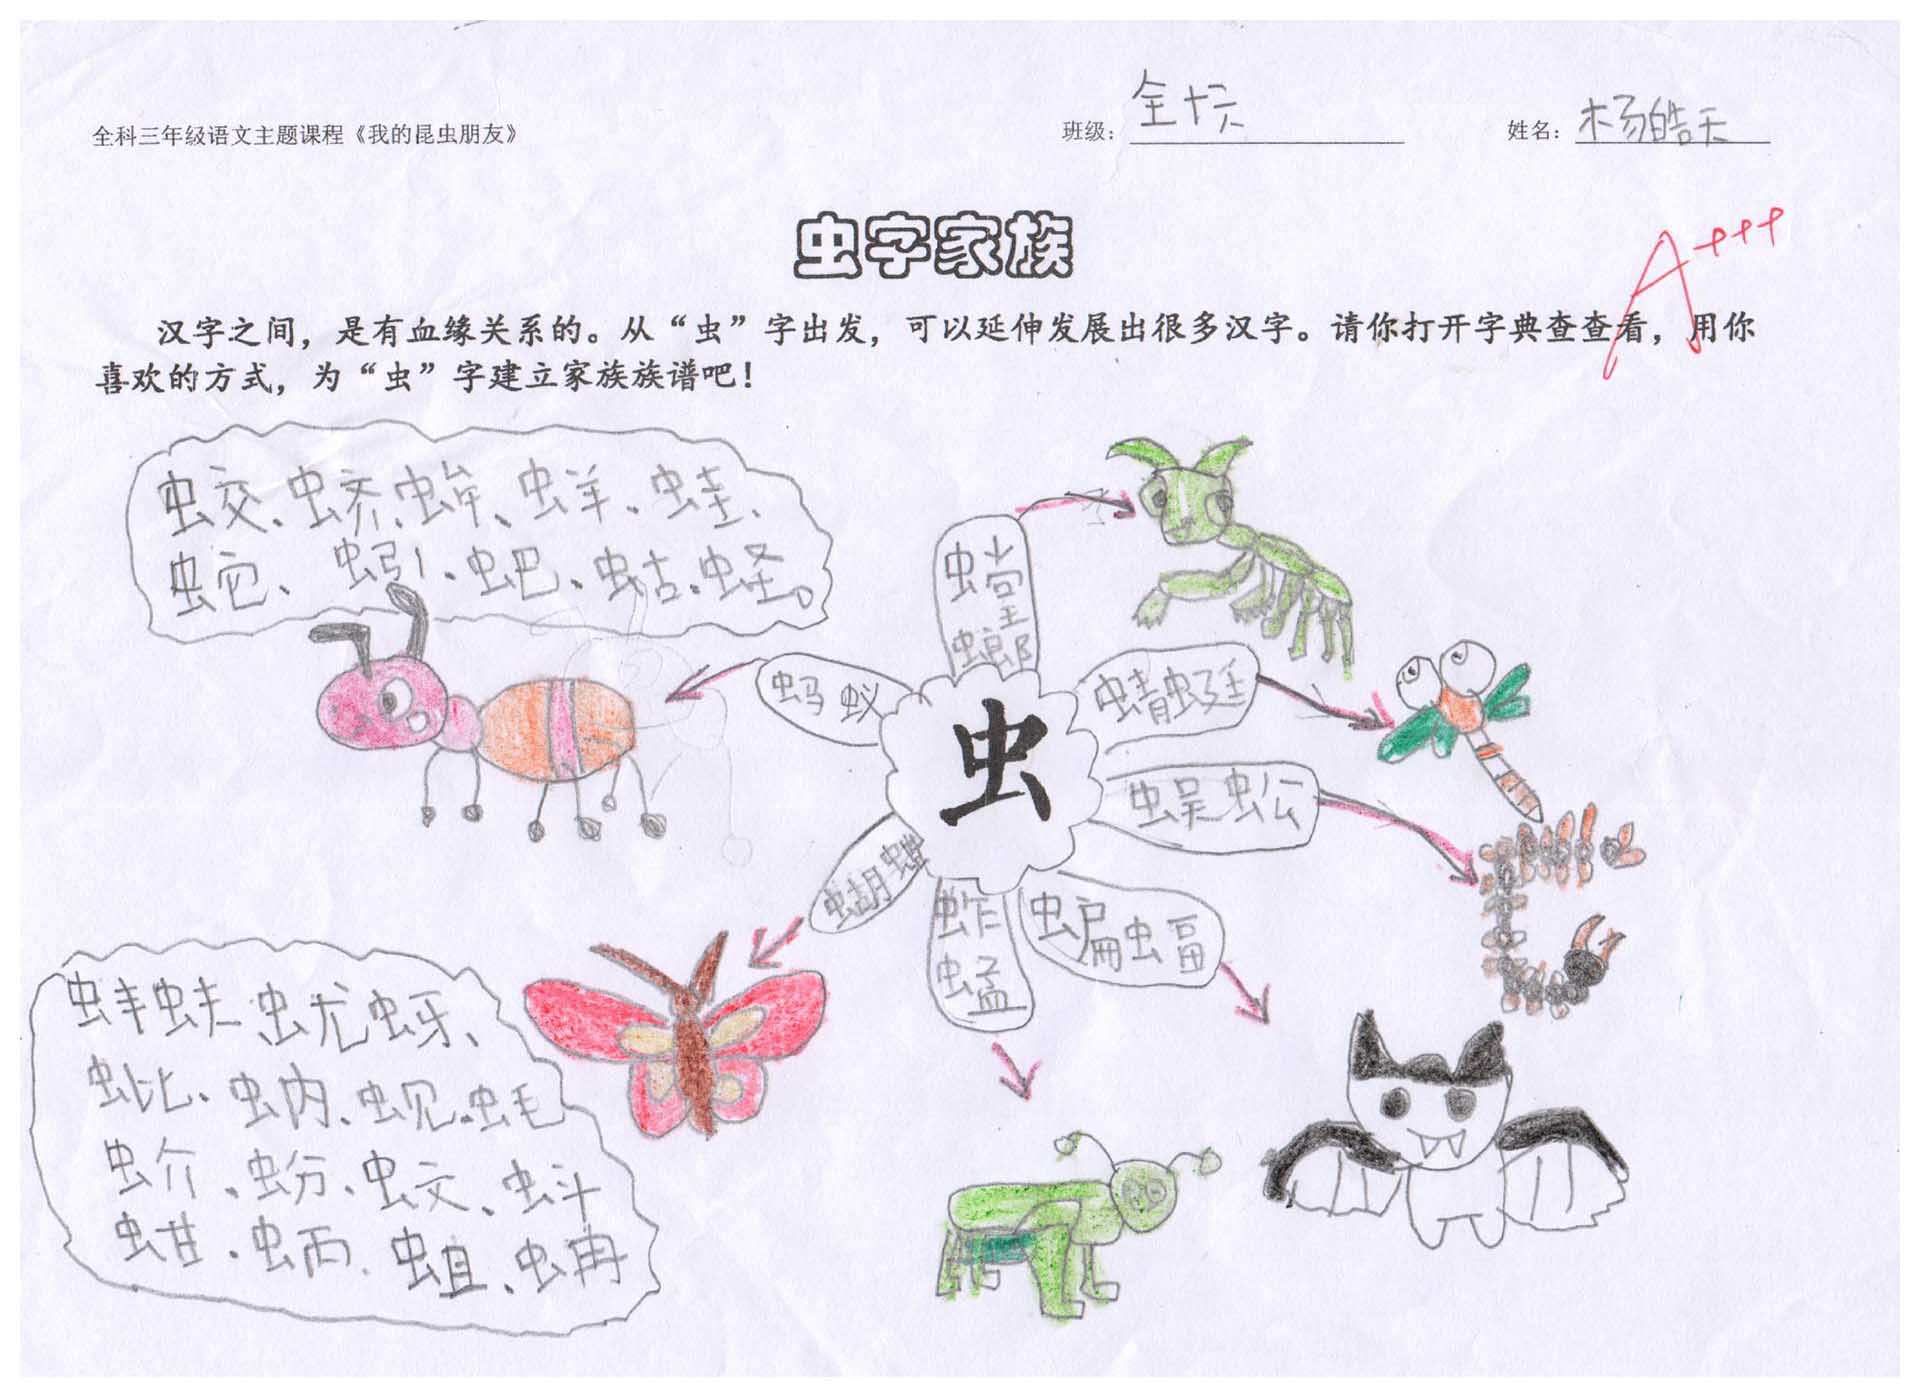 全科三年级语文主题课程《我的昆虫朋友》
班级：
姓名：杨皓天
A+++
虫字家族
汉字之间，是有血缘关系的。从“虫”字出发，可以延伸发展出很多汉字。请你打开字典查查看，用你
喜欢的方式，为“虫”字建立家族族谱吧！
蛟、蛴、蛑、蛘、蛙、
蛇、蚓、蚆、蛄、蛏。
螳
螂
蚂蚁
蜻蜓
虫
蜈蚣
蝴蝶
蚱
蜢
蝙蝠
蚌蚨蚘蚜、
蚍、蚋、蚬、蚝
蚧、蚡、蚊、蚪
蚶、蛃、蛆、蚺